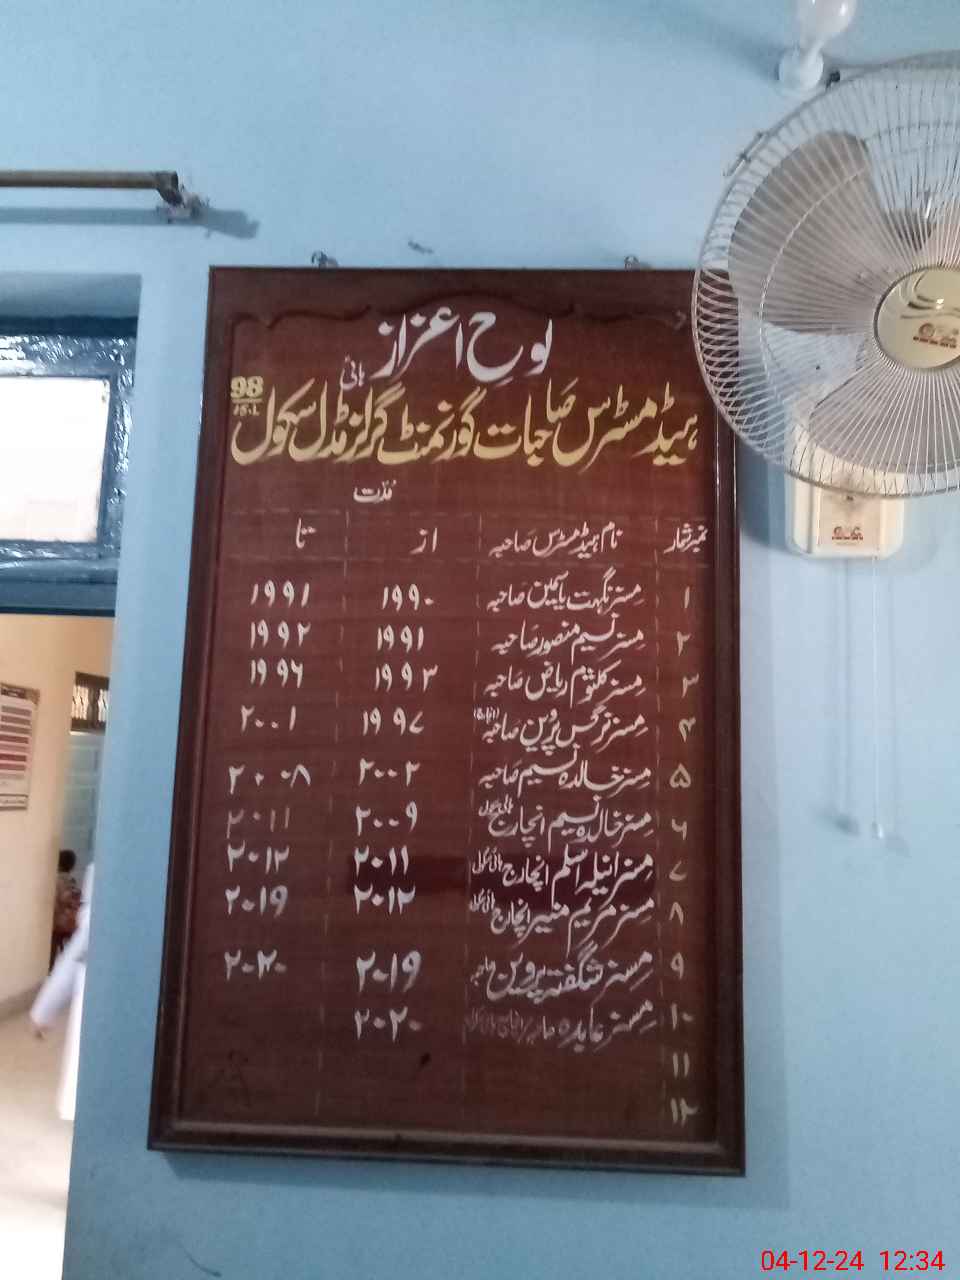 لوحِ اعزاز
ہیڈ مسٹرس صاحبات گورنمنٹ گرلز مڈل سکول ہائی 98/15-L
مُدّت
نمبر شمار نام ہیڈ مسٹرس صاحبہ از تا
۱ مسز نگہت یاسمین صاحبہ ۱۹۹۰ ۱۹۹۱
۲ مسز نسیم منصور صاحبہ ۱۹۹۱ ۱۹۹۲
۳ مسز کلثوم ریاض صاحبہ ۱۹۹۳ ۱۹۹۶
۴ مسز نرگس پروین صاحبہ (انچارج) ۱۹۹۷ ۲۰۰۱
۵ مسز خالدہ نسیم صاحبہ ۲۰۰۲ ۲۰۰۸
۶ مسز خالدہ نسیم انچارج ہائی سکول ۲۰۰۹ ۲۰۱۱
۷ مسز انیلہ اسلم انچارج ہائی سکول ۲۰۱۱ ۲۰۱۲
۸ مسز مریم منیر انچارج ہائی سکول ۲۰۱۲ ۲۰۱۹
۹ مسز شگفتہ پروین صاحبہ ۲۰۱۹ ۲۰۲۰
۱۰ مسز عابدہ ۲۰۲۰
۱۱
۱۲
04-12-24 12:34